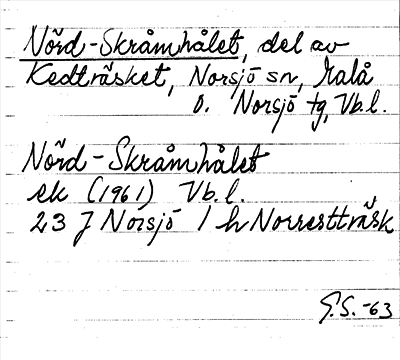 Nörd-Skråmhålet, del av
Kedträsket, Norsjö sn, Malå
o. Norsjö tg, Vb.l.
Nörd-Skråmhålet
ek (1961) Vb.l.
23 J Norsjö 1 h Norrestträsk
G.S. -63